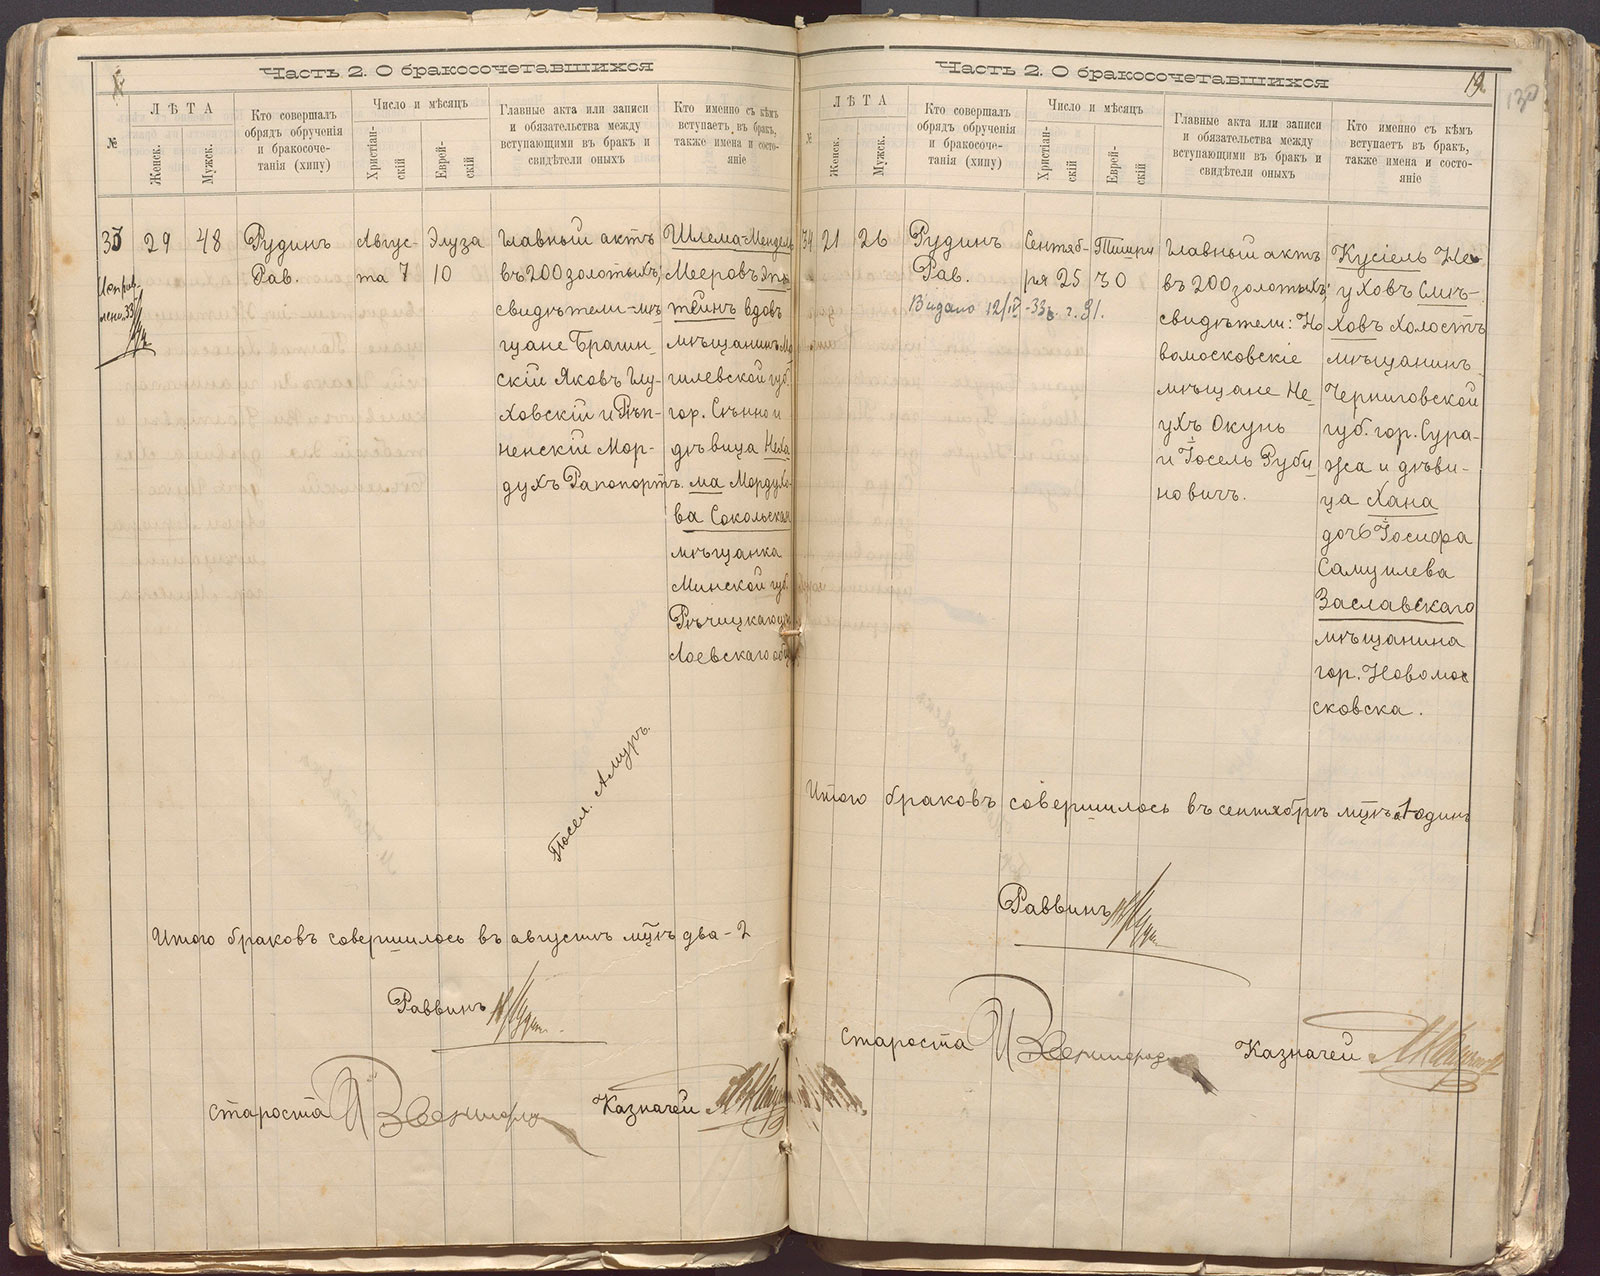 Часть 2. О бракосочетавшихся
№
ЛѢТА
Женск.
Мужск.
Кто совершалъ
обрядъ обрученія
и бракосоче-
танія (хипу)
Число и мѣсяцъ
Христіан-
скій
Еврей-
скій
Главные акта или записи
и обязательства между
вступающими въ бракъ и
свидѣтели оныхъ
Кто именно съ кѣмъ
вступаетъ въ бракъ,
также имена и состо-
яніе
33
29
48
Рудинъ
Рав.
Авгус-
та 7
Элуза
10
Главный актъ
въ 200 золотыхъ;
свидѣтели - мѣ
щане Брагин-
скій Яковъ Глу-
ховскій и Рѣп-
ненскій Мор-
духъ Рапопортъ.
Шлема-Мендель
Мееровъ Эпш
тейнъ вдовъ
мѣщанинъ Мо
гилевской губ.
гор. Сѣнно и
дѣвица Неха
ма Мордухо-
ва Сокольская
мѣщанка
Минской губ.
Рѣчицкаго у.
Лоевскаго общ.
Посел. Амуръ.
Итого браковъ совершилось въ августѣ мцѣ два - 2
Раввинъ
Староста
Казначей
Часть 2. О бракосочетавшихся
19
№
ЛѢТА
Женск.
Мужск.
Кто совершалъ
обрядъ обрученія
и бракосоче-
танія (хипу)
Число и мѣсяцъ
Христіан-
скій
Еврей-
скій
Главные акта или записи
и обязательства между
вступающими въ бракъ и
свидѣтели оныхъ
Кто именно съ кѣмъ
вступаетъ въ бракъ,
также имена и состо-
яніе
34
21
26
Рудинъ
Рав.
Видано 12/IV -33 г. 31.
Сентяб-
ря 25
Тишри
30
Главный актъ
въ 200 золотыхъ;
свидѣтели: Но
вомосковскіе
мѣщане Не-
ухъ Окунь
и Іосель Руби
новичъ.
Кусіель Не
уховъ Смѣ-
ховъ холостъ
мѣщанинъ
Черниговской
губ. гор. Сура-
жа и дѣви-
ца Хана
дочь Іосифа
Самуилева
Заславскаго
мѣщанина
гор. Новомос
сковска.
Итого браковъ совершилось въ сентябрѣ мцѣ 1 одинъ
Раввинъ
Староста
Казначей